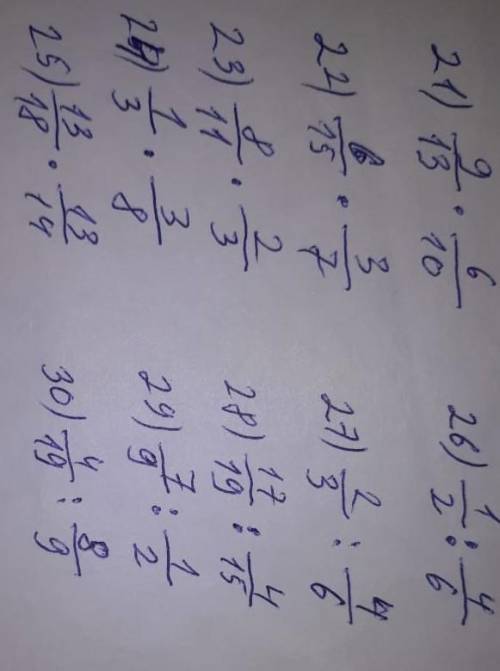 21) 9/13 · 6/10
22) 6/15 · 3/7
23) 8/11 · 2/3
24) 1/3 · 3/8
25) 13/18 · 13/14
26) 1/2 : 4/6
27) 2/3 : 4/6
28) 17/19 : 4/15
29) 7/9 : 1/2
30) 4/19 : 8/9